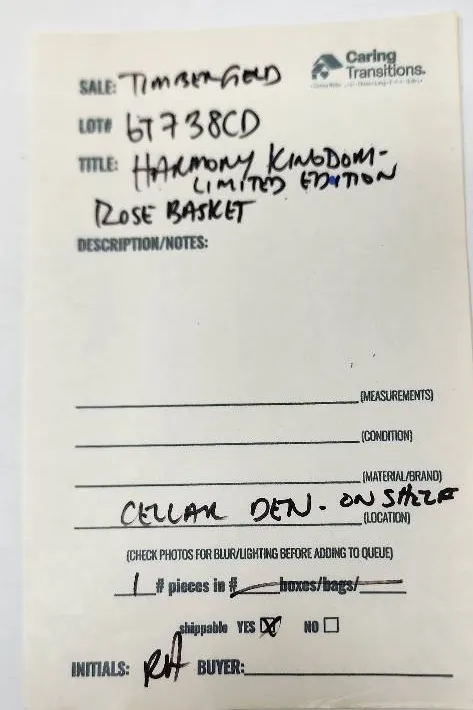 Caring
Transitions.
SALE: TIMBERFIELD
LOT# 6T738CD
TITLE: HARMONY KINGDOM-
LIMITED EDITION
ROSE BASKET
DESCRIPTION/NOTES:
(MEASUREMENTS)
(CONDITION)
(MATERIAL/BRAND)
CELLAR DEN - ON SHELF
(LOCATION)
(CHECK PHOTOS FOR BLUR/LIGHTING BEFORE ADDING TO QUEUE)
1 # pieces in # boxes/bags/
shippable YES ☒ NO ☐
INITIALS: RH BUYER: